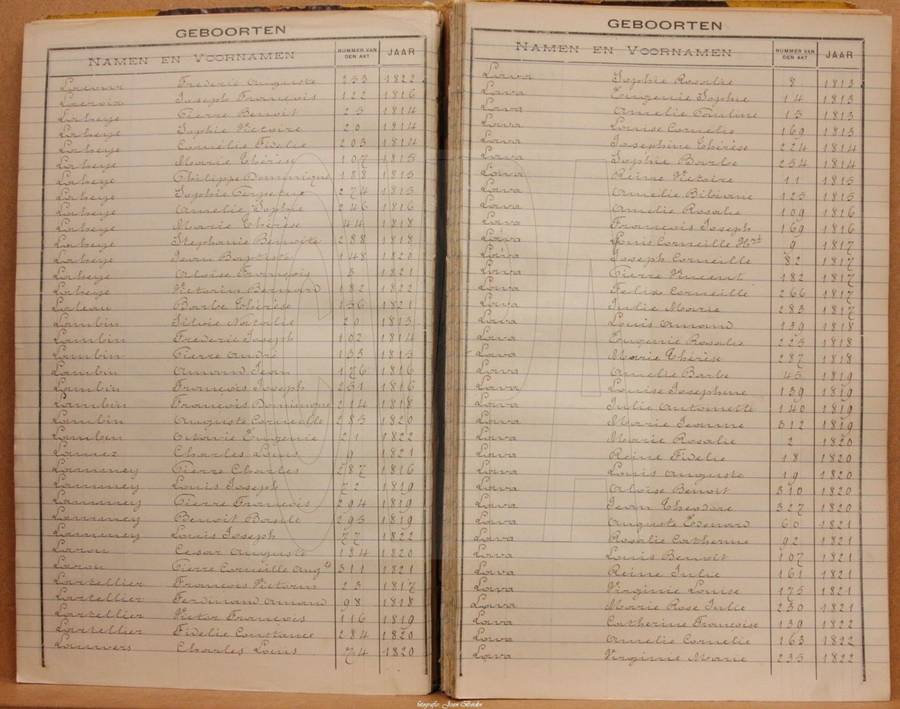 GEBOORTEN
NAMEN EN VOORNAMEN NUMMER VAN DEN AKT JAAR
Frederic Auguste 253 1822
Lacroix Joseph François 122 1816
Labeye Pierre Benoit 25 1814
Labeye Sophie Victoire 20 1814
Labeye Cornélie Fidelie 203 1814
Labeye Marie Thérèse 107 1815
Labeye Philippe Dominique 188 1815
Labeye Sophie 274 1815
Labeye Amelie Sophie 246 1816
Labeye Marie Thérèse 44 1818
Labeye Stephanie Benoite 288 1818
Labeye Jean Baptiste 148 1820
Labeye Aloïse François 8 1821
Labeye Victorin Bernard 182 1822
Lateau Barbe Thérèse 156 1821
Lambin Silvie Natalie 20 1813
Lambin Frederic Joseph 102 1814
Lambin Pierre André 133 1815
Lambin Amand Jean 176 1816
Lambin François Joseph 251 1816
Lambin François Dominique 214 1818
Lambin Auguste Corneille 285 1820
Lambin Octavie Eugenie 21 1822
Charles Louis 9 1821
Lammey Pierre Charles 287 1816
Lammey Louis Joseph 72 1819
Lammey Pierre François 294 1819
Lammey Benoit Basile 295 1819
Lammey Louis Joseph 77 1822
Larou Cesar Auguste 154 1820
Larou Pierre Corneille Aug 311 1821
Lartellier François Victorin 23 1817
Lartellier Ferdinand Amand 98 1818
Lartellier Victor François 116 1819
Lartellier Fidelie Constance 284 1820
Lauwers Charles Louis 74 1820
GEBOORTEN
NAMEN EN VOORNAMEN NUMMER VAN DEN AKT JAAR
Lava Sophie Rosalie 8 1813
Lava Eugenie Sophie 14 1813
Lava Amelie Pauline 15 1813
Lava Louise Cornelie 169 1813
Lava Josephine Thérèse 224 1814
Lava Sophie Barbe 254 1814
Lava Reine Victoire 11 1815
Lava Amelie Bibiane 125 1815
Lava Amelie Rosalie 109 1816
Lava François Joseph 169 1816
Lava Louis Corneille 9 1817
Lava Joseph Corneille 82 1817
Lava Pierre Vincent 182 1817
Lava Felix Corneille 266 1817
Lava Julie Marie 283 1817
Lava Louis Amand 139 1818
Lava Eugenie Rosalie 225 1818
Lava Marie Thérèse 287 1818
Lava Amelie Barbe 45 1819
Lava Louise Josephine 139 1819
Lava Julie Antonette 140 1819
Lava Marie Jeanne 312 1819
Lava Marie Rosalie 2 1820
Lava Reine Fidelie 18 1820
Lava Louis Auguste 19 1820
Lava Aloïse Benoit 310 1820
Lava Jean Theodore 327 1820
Lava Auguste Edouard 60 1821
Lava Rosalie Catherine 92 1821
Lava Louis Benoit 107 1821
Lava Reine Julie 161 1821
Lava Virginie Louise 175 1821
Lava Marie Rose Julie 230 1821
Lava Catherine Françoise 139 1822
Lava Amelie Cornelie 163 1822
Lava Virginie Marie 235 1822